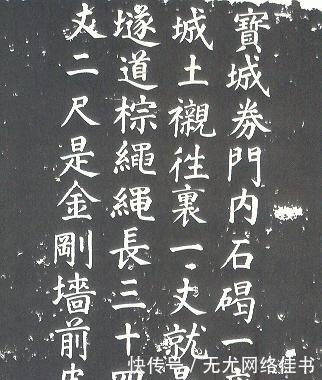 寶城券門內石碣一
城土襯徃裏一丈就
隧道棕繩繩長三十四
丈二尺是金剛墻前皮
快传号 / 无尤网络挂书